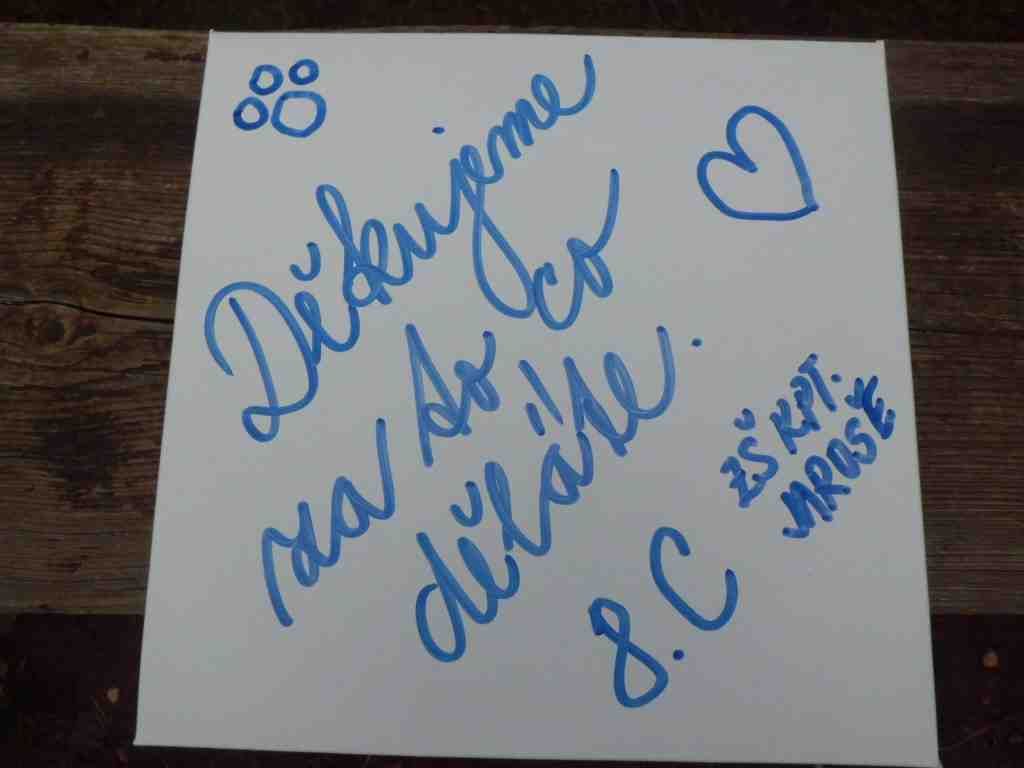 Děkujeme
za to co
děláte.
8. C
ZŠ KPT.
MROŠE